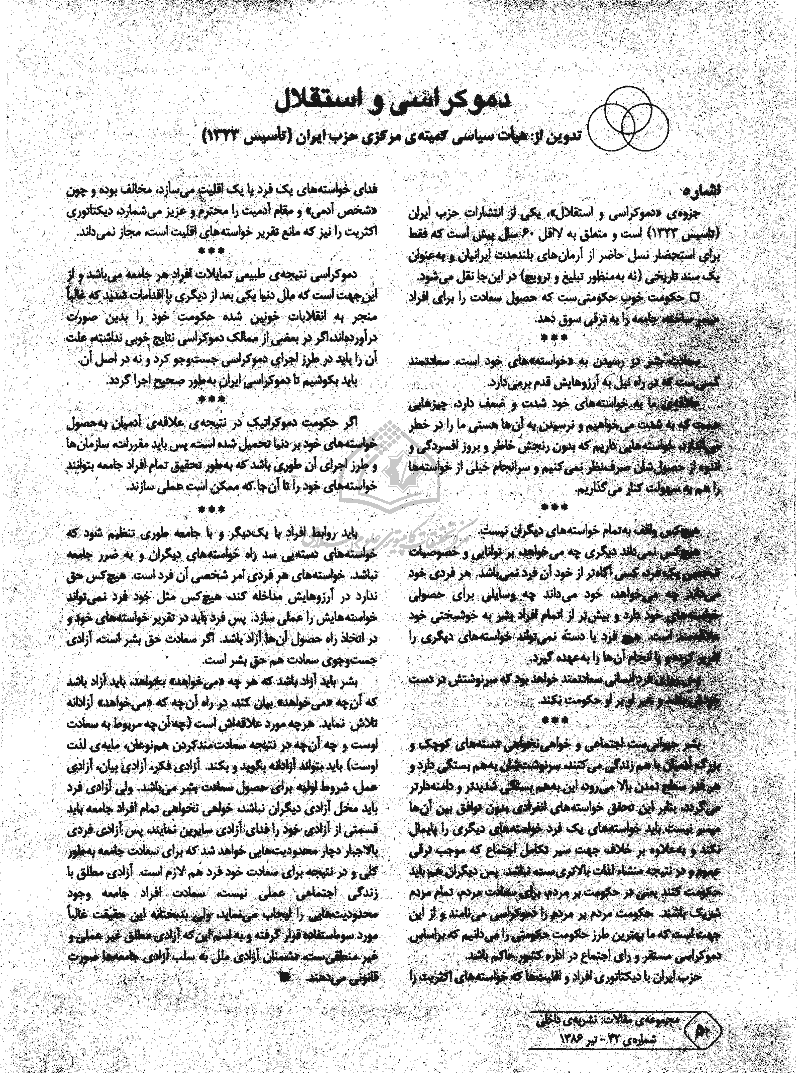 دموکراسی و استقلال
تدوین از: هیأت سیاسی کمیته‌ی مرکزی حزب ایران (تأسیس ۱۳۲۳)
اشاره
جزوه‌ی «دموکراسی و استقلال»، یکی از انتشارات حزب ایران
(تاسیس ۱۳۲۳) است و متعلق به لااقل ۶۰ سال پیش است که فقط
برای استحضار نسل حاضر از آرمان‌های بلندمدت ایرانیان و به‌عنوان
یک سند تاریخی (نه به‌منظور تبلیغ و ترویج) در این‌جا نقل می‌شود.
□ حکومت خوب حکومتی‌ست که حصول سعادت را برای افراد
میسر ساخته، جامعه را به ترقی سوق دهد.
***
سعادت بشر در رسیدن به «خواسته»های خود است. سعادتمند
کسی‌ست که در راه نیل به آرزوهایش قدم برمی‌دارد.
علاقه‌ی ما به خواسته‌های خود شدت و ضعف دارد، چیزهایی
هست که به شدت می‌خواهیم و نرسیدن به آن‌ها هستی ما را در خطر
می‌اندازد. خواسته‌هایی داریم که بدون رنجش خاطر و بروز افسردگی و
اندوه از حصول‌شان صرف‌نظر نمی‌کنیم و سرانجام خیلی از خواسته‌ها
را هم به سهولت کنار می‌گذاریم.
***
هیچ‌کس واقف به‌تمام خواسته‌های دیگران نیست.
هیچ‌کس نمی‌داند دیگری چه می‌خواهد، بر توانایی و خصوصیات
شخصی یک فرد، کسی آگاه‌تر از خود آن فرد نمی‌باشد. هر فردی خود
می‌داند چه می‌خواهد، خود می‌داند چه وسایلی برای حصولی
خواسته‌های خود دارد و بیش‌تر از اتمام افراد بشر به خوشبختی خود
علاقمند است. هیچ فرد یا دسته نمی‌تواند خواسته‌های دیگری را
تقریر کرده و یا انجام آن‌ها را به‌عهده گیرد.
فرد انسانی سعادتمند خواهد بود که سرنوشتش در دست
خودش باشد و غیر او بر او حکومت نکند.
***
بشر حیوانی‌ست اجتماعی و خواهی‌نخواهی دسته‌های کوچک و
بزرگ آدمیان با هم زندگی می‌کنند، سرنوشت‌شان به‌هم بستگی دارد و
هر قدر سطح تمدن بالا می‌رود، این به‌هم بستگی شدیدتر و دامنه‌دارتر
می‌گردد. بنابر این تحقق خواسته‌های انفرادی بدون توافق بین آن‌ها
میسر نیست. باید خواسته‌های یک فرد خواسته‌های دیگری را پایمال
نکند و به‌علاوه بر خلاف جهت سیر تکامل اجتماع که موجب ترقی
عموم و در نتیجه منشاء لذات بالاتری‌ست، نباشد. پس دیگران هم باید
حکومت کنند یعنی در حکومت بر مردم، برای سعادت مردم، تمام مردم
شریک باشند. حکومت مردم بر مردم را دموکراسی می‌نامند و از این
جهت است که ما بهترین طرز حکومت حکومتی را می‌دانیم که براساس
دموکراسی مستقر و رای اجتماع در اداره کشور حاکم باشد.
حزب ایران با دیکتاتوری افراد و اقلیت‌ها که خواسته‌های اکثریت را
فدای خواسته‌های یک فرد یا یک اقلیت می‌سازد، مخالف بوده و چون
«شخص آدمی» و مقام آدمیت را محترم و عزیز می‌شمارد، دیکتاتوری
اکثریت را نیز که مانع تقریر خواسته‌های اقلیت است، مجاز نمی‌داند.
***
دموکراسی نتیجه‌ی طبیعی تمایلات افراد هر جامعه می‌باشد و از
این‌جهت است که ملل دنیا یکی بعد از دیگری با اقدامات شدید که غالباً
منجر به انقلابات خونین شده حکومت خود را بدین صورت
درآورده‌اند، اگر در بعضی از ممالک دموکراسی نتایج خوبی نداشته، علت
آن را باید در طرز اجرای دموکراسی جست‌وجو کرد و نه در اصل آن.
باید بکوشیم تا دموکراسی ایران به‌طور صحیح اجرا گردد.
***
اگر حکومت دموکراتیک در نتیجه‌ی علاقه‌ی آدمیان به‌حصول
خواسته‌های خود بر دنیا تحمیل شده است، پس باید مقررات، سازمان‌ها
و طرز اجرای آن طوری باشد که به‌طور تحقیق تمام افراد جامعه بتوانند
خواسته‌های خود را تا آن‌جا که ممکن است عملی سازند.
***
باید روابط افراد با یک‌دیگر و با جامعه طوری تنظیم شود که
خواسته‌های دسته‌یی سد راه خواسته‌های دیگران و به ضرر جامعه
نباشد. خواسته‌های هر فردی امر شخصی آن فرد است. هیچ‌کس حق
ندارد در آرزوهایش مداخله کند، هیچ‌کس مثل خود فرد نمی‌تواند
خواسته‌هایش را عملی سازد. پس فرد باید در تقریر خواسته‌های خود و
در اتخاذ راه حصول آن‌ها آزاد باشد. اگر سعادت حق بشر است، آزادی
جست‌وجوی سعادت هم حق بشر است.
بشر باید آزاد باشد که هر چه «می‌خواهد» بخواهد، باید آزاد باشد
که آن‌چه «می‌خواهد» بیان کند، در راه آن‌چه که «می‌خواهد» آزادانه
تلاش نماید. هرچه مورد علاقه‌اش است (چه آن‌چه مربوط به سعادت
اوست و چه آن‌چه در نتیجه سعادت‌مندکردن هم‌نوعان، مایه‌ی لذت
اوست) باید بتواند آزادانه بگوید و بکند. آزادی فکر، آزادی بیان، آزادی
عمل، شروط اولیه برای حصول سعادت بشر می‌باشد. ولی آزادی فرد
باید مخل آزادی دیگران نباشد، خواهی نخواهی تمام افراد جامعه باید
قسمتی از آزادی خود را فدای آزادی سایرین نمایند، پس آزادی فردی
بالاجبار دچار محدودیت‌هایی خواهد شد که برای سعادت جامعه به‌طور
کلی و در نتیجه برای سعادت خود فرد هم لازم است. آزادی مطلق با
زندگی اجتماعی عملی نیست، سعادت افراد جامعه وجود
محدودیت‌هایی را ایجاب می‌نماید، ولی بدبختانه این حقیقت غالباً
مورد سوءاستفاده قرار گرفته و به اسم این‌که آزادی مطلق غیر عملی و
غیر منطقی‌ست، دشمنان آزادی ملل به سلب آزادی جامعه‌ها صورت
قانونی می‌دهند. ■
مجموعه‌ی مقالات: نشریه‌ی داخلی
شماره‌ی ۳۲ - تیر ۱۳۸۶